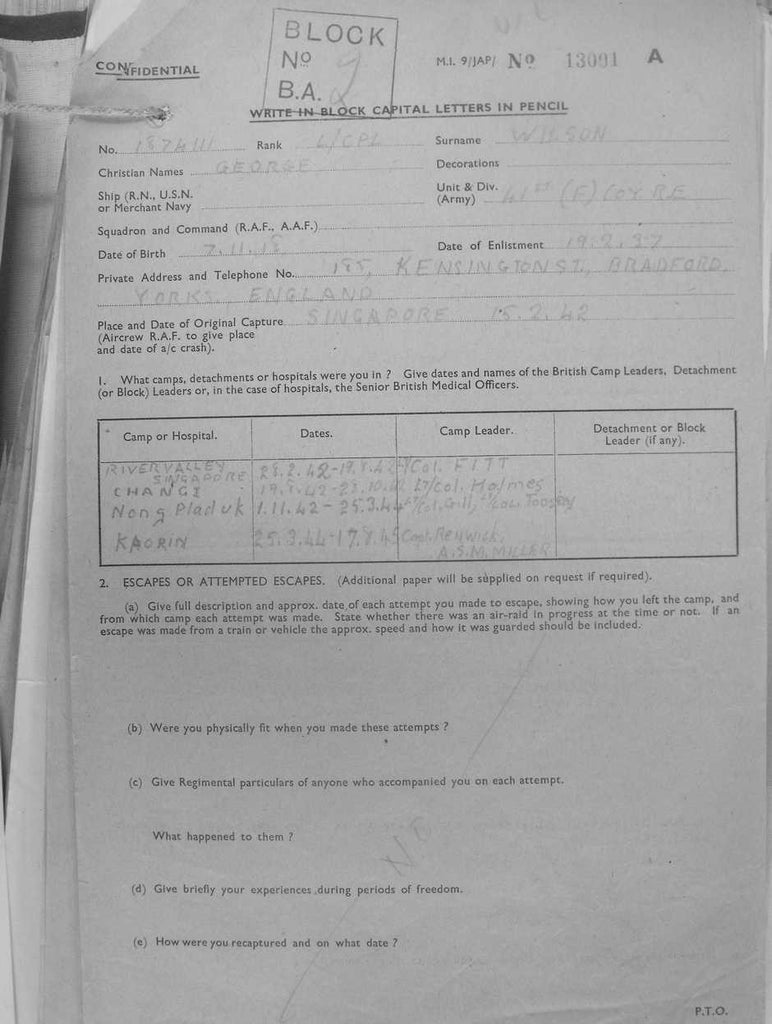 BLOCK
Nº
B.A. 2
CONFIDENTIAL
M.I. 9/JAP/ Nº 13091 A
WRITE IN BLOCK CAPITAL LETTERS IN PENCIL
No. Rank L/CPL Surname WILSON
Christian Names GEORGE Decorations
Ship (R.N., U.S.N. or Merchant Navy
Unit & Div. (Army) 41ST (F) COY R.E
Squadron and Command (R.A.F., A.A.F.)
Date of Birth 7.11.18 Date of Enlistment 19.2.37
Private Address and Telephone No. 195, KENSINGTON ST., BRADFORD,
YORKS, ENGLAND
Place and Date of Original Capture SINGAPORE 15.2.42
(Aircrew R.A.F. to give place
and date of a/c crash).
1. What camps, detachments or hospitals were you in ? Give dates and names of the British Camp Leaders, Detachment
(or Block) Leaders or, in the case of hospitals, the Senior British Medical Officers.
Camp or Hospital. Dates. Camp Leader. Detachment or Block
Leader (if any).
RIVER VALLEY
SINGAPORE Col. FITT
CHANGI Lt/Col. Holmes
Nong Pladuk 1.11.42 - 25.3.44 Lt/Col. Gill, Lt/Col. Toosey
KAORIN 25.3.44-17.8.45 Capt. Renwick,
A.S.M. MILLER
2. ESCAPES OR ATTEMPTED ESCAPES. (Additional paper will be supplied on request if required).
(a) Give full description and approx. date of each attempt you made to escape, showing how you left the camp, and
from which camp each attempt was made. State whether there was an air-raid in progress at the time or not. If an
escape was made from a train or vehicle the approx. speed and how it was guarded should be included.
(b) Were you physically fit when you made these attempts ?
(c) Give Regimental particulars of anyone who accompanied you on each attempt.
What happened to them ?
(d) Give briefly your experiences during periods of freedom.
(e) How were you recaptured and on what date ?
P.T.O.